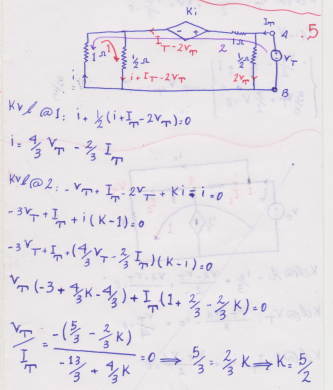 Ki
.5
I_T
A
I_T-2V_T
2
1Ω
I
1Ω
½Ω
½Ω
V_T
i
i+I_T-2V_T
2V_T
B
Kvl@1: i+½(i+I_T-2V_T)=0
i=4/3 V_T - 2/3 I_T
Kvl@2: -V_T+I_T-2V_T+Ki-i=0
-3V_T+I_T+i(K-1)=0
-3V_T+I_T+(4/3 V_T-2/3 I_T)(K-i)=0
V_T(-3+4/3 K-4/3)+I_T(1+2/3-2/3 K)=0
V_T/I_T = -(5/3-2/3 K)/(-13/3+4/3 K) =0 ⟹ 5/3=2/3 K ⟹ K=5/2